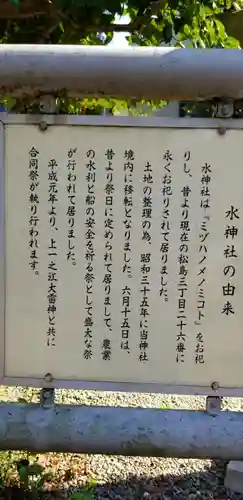 水神社の由来
水神社は『ミヅハノメノミコト』をお祀
りし、昔より現在の松島三丁目二十六番に
永くお祀りされて居りました。
土地の整理の為、昭和三十五年に当神社
境内に移転となりました。六月十五日は、
昔より祭日に定められて居りまして、農業
の水利と船の安全を祈る祭として盛大な祭
が行われて居りました。
平成元年より、上一之江大雷神と共に
合同祭が執り行われます。